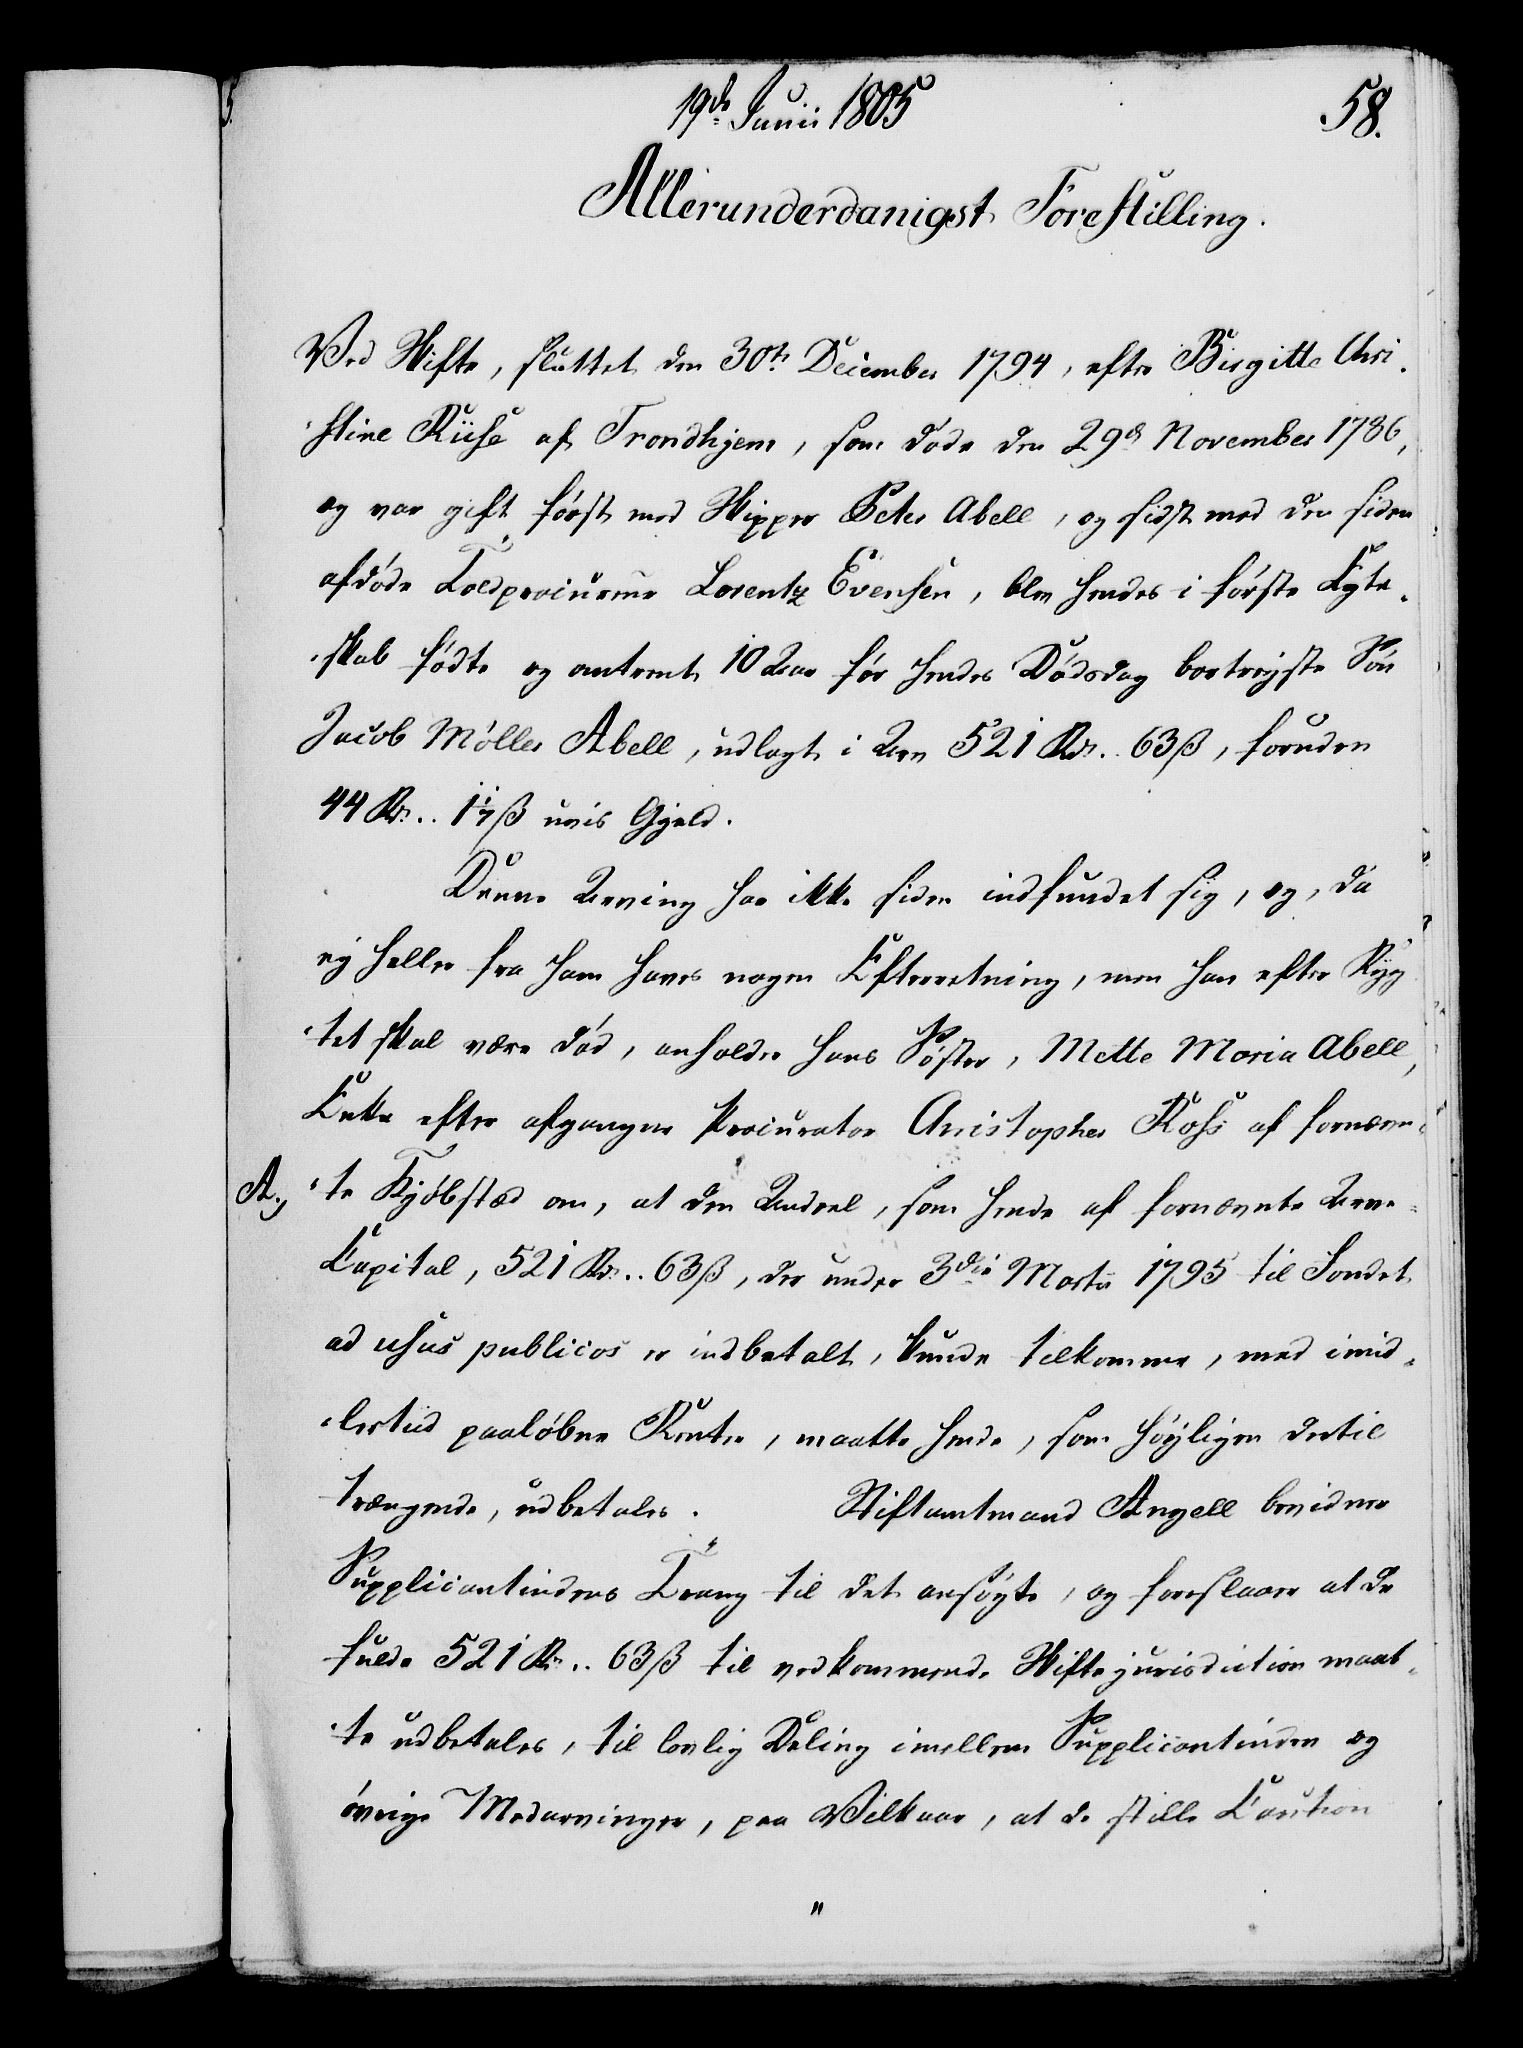 19de Junii 1805
58.
Allerunderdanigst Forestilling.
Ved Skifte, sluttet den 30te December 1794, efter Birgitte Chri-
-stine Riise af Trondhjem, som døde den 29de November 1786,
og var gift først med Skipper Peter Abell, og sidst med den siden
afdøde Toldprocureur Lorentz Evensen, blev hendes i første Egte-
-skab fødte og omtrent 10 Aar før hendes Dødsdag bortreyste Søn
Jacob Møller Abell, udlagt i Arv 521 Rd. 63 ß, foruden
44 Rd. 1 1/7 ß uvis Gjeld.
Denne Arving har ikke siden indfundet sig, og, da
ej heller fra ham haves nogen Efterretning, men han efter Ryg-
-tet skal være død, anholder hans Søster, Mette Maria Abell,
Enke efter afgangne Procurator Christopher Ross af fornævn-
A.) -te Kjøbstæd om, at den Andeel, som hende af fornævnte Arve-
Capital, 521 Rd. 63 ß, der under 3die Martii 1795 til Fondet
ad usus publicos er indbetalt, kunde tilkomme, med imid-
-lertid paaløbne Renter, maatte hende, som høyligen dertil
trængende, udbetales. Stiftamtmand Angell bevidner
Supplicantindens Trang til det ansøgte, og foreslaaer at de
fulde 521 Rd. 63 ß til vedkommende Skiftejurisdiction maat-
-te udbetales, til lovlig Deling imellem Supplicantinden og
øvrige Medarvinger, paa Vilkaar, at de stille Caution
"